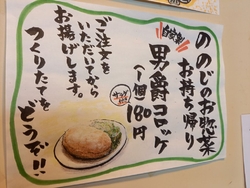 ののじのお惣菜
お持ち帰り
自家製!
男爵コロッケ
(一個)180円
ご注文を
いただいてから
お揚げします。
つくりたてを
どうぞ!!